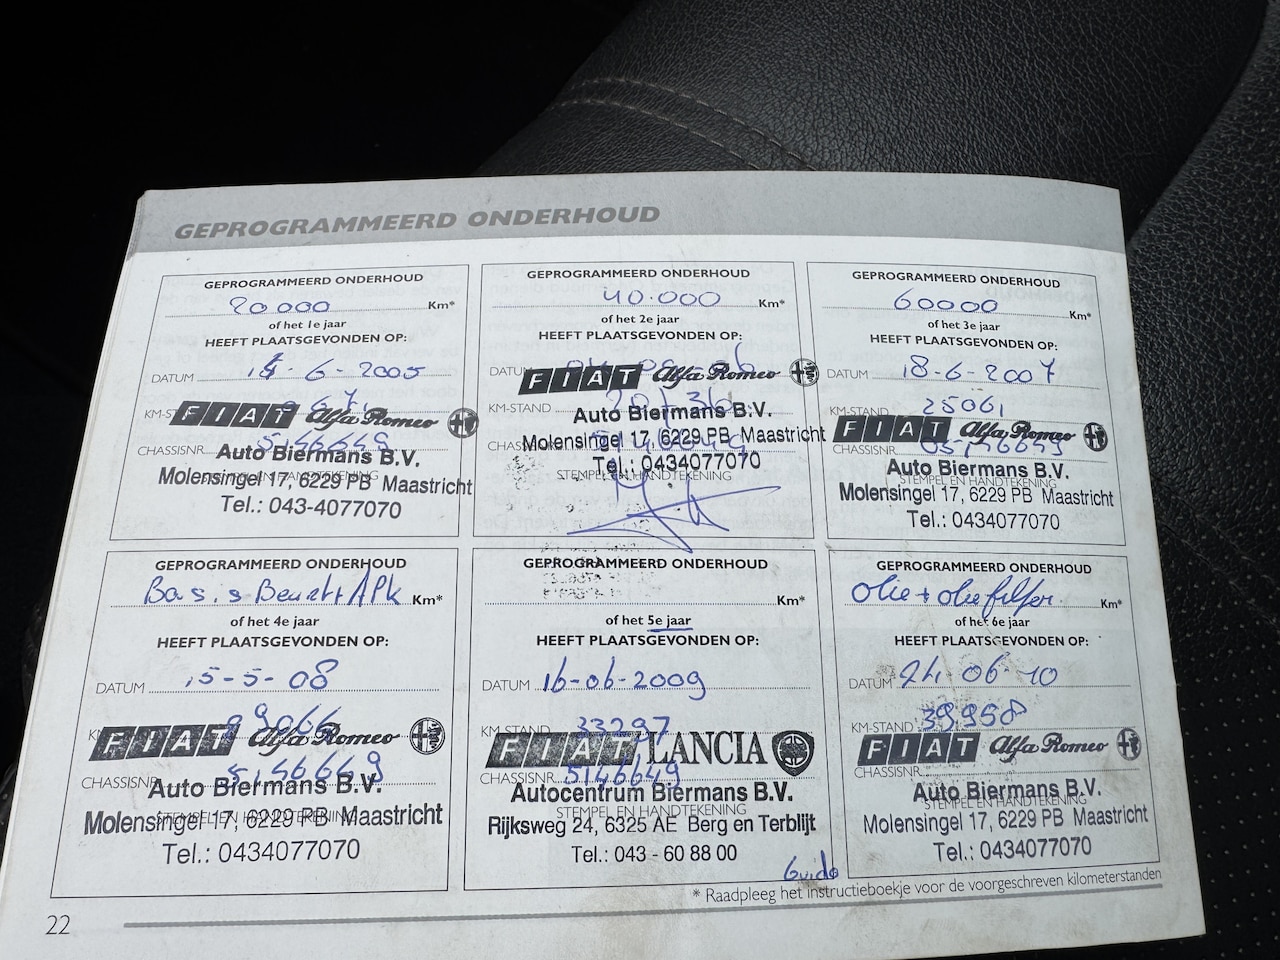 GEPROGRAMMEERD ONDERHOUD
GEPROGRAMMEERD ONDERHOUD
20000 Km*
of het 1e jaar
HEEFT PLAATSGEVONDEN OP:
DATUM 14-6-2005
KM-ST
FIAT Alfa Romeo
CHASSISNR. 5146649
Auto Biermans B.V.
STEMPEL EN HANDTEKENING
Molensingel 17, 6229 PB Maastricht
Tel.: 043-4077070
GEPROGRAMMEERD ONDERHOUD
40.000 Km*
of het 2e jaar
HEEFT PLAATSGEVONDEN OP:
DATUM
FIAT Alfa Romeo
KM-STAND
Auto Biermans B.V.
Molensingel 17, 6229 PB Maastricht
CHASSISNR. 5146649
Tel.: 0434077070
STEMPEL EN HANDTEKENING
GEPROGRAMMEERD ONDERHOUD
60000 Km*
of het 3e jaar
HEEFT PLAATSGEVONDEN OP:
DATUM 18-6-2007
KM-STAND 25061
FIAT Alfa Romeo
CHASSISNR. 05146649
Auto Biermans B.V.
STEMPEL EN HANDTEKENING
Molensingel 17, 6229 PB Maastricht
Tel.: 0434077070
GEPROGRAMMEERD ONDERHOUD
Basis Beurt + APk Km*
of het 4e jaar
HEEFT PLAATSGEVONDEN OP:
DATUM 15-5-08
FIAT Alfa Romeo
CHASSISNR. 5146649
Auto Biermans B.V.
STEMPEL EN HANDTEKENING
Molensingel 17, 6229 PB Maastricht
Tel.: 0434077070
GEPROGRAMMEERD ONDERHOUD
Km*
of het 5e jaar
HEEFT PLAATSGEVONDEN OP:
DATUM 16-06-2009
KM-STAND 33297
FIAT LANCIA
CHASSISNR. 5146649
Autocentrum Biermans B.V.
STEMPEL EN HANDTEKENING
Rijksweg 24, 6325 AE Berg en Terblijt
Tel.: 043 - 60 88 00
Guido
GEPROGRAMMEERD ONDERHOUD
Olie + oliefilter Km*
of het 6e jaar
HEEFT PLAATSGEVONDEN OP:
DATUM 24-06-10
KM-STAND 39958
FIAT Alfa Romeo
CHASSISNR.
Auto Biermans B.V.
STEMPEL EN HANDTEKENING
Molensingel 17, 6229 PB Maastricht
Tel.: 0434077070
* Raadpleeg het instructieboekje voor de voorgeschreven kilometerstanden
22